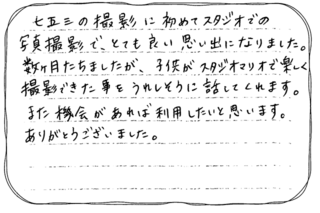 七五三の撮影に初めてスタジオでの
写真撮影で、とても良い思い出になりました。
数ヶ月たちましたが、子供がスタジオマリオで楽しく
撮影できた事をうれしそうに話してくれます。
また機会があれば利用したいと思います。
ありがとうございました。